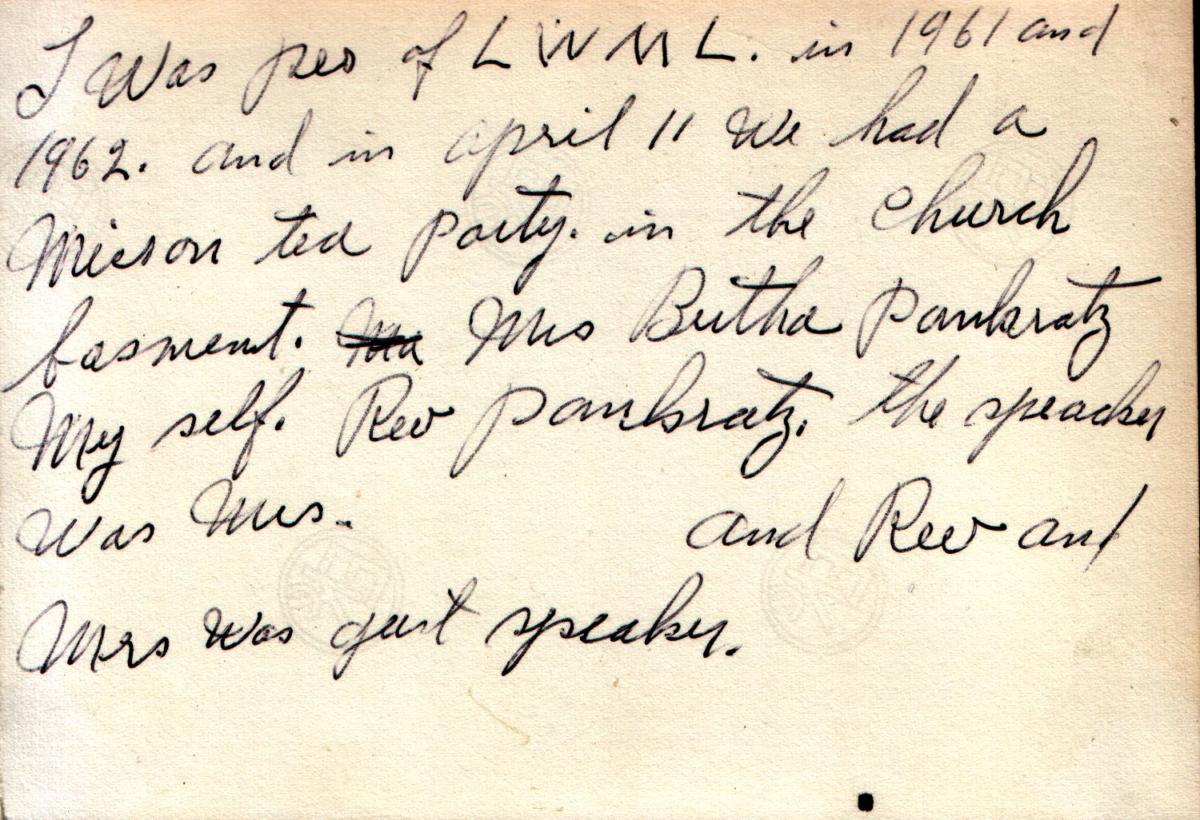 I Was pres of L W M L. in 1961 and
1962. and in april 11 We had a
Misson tea party. in the Church
basment. Mrs Bertha Pankratz
My self. Rev Pankratz. the speacker
Was Mrs. and Rev and
Mrs Was gest speaker.